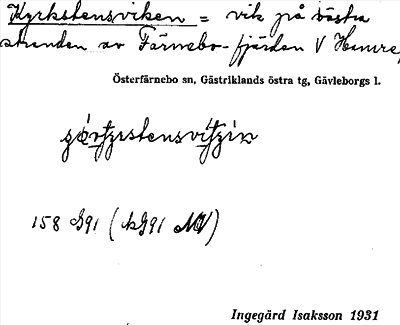 Kyrkstensviken = vik på västra
stranden av Färnebo-fjärden V Hemre,
Österfärnebo sn, Gästriklands östra tg, Gävleborgs l.
158 G91 (kG91 NV)
Ingegärd Isaksson 1931